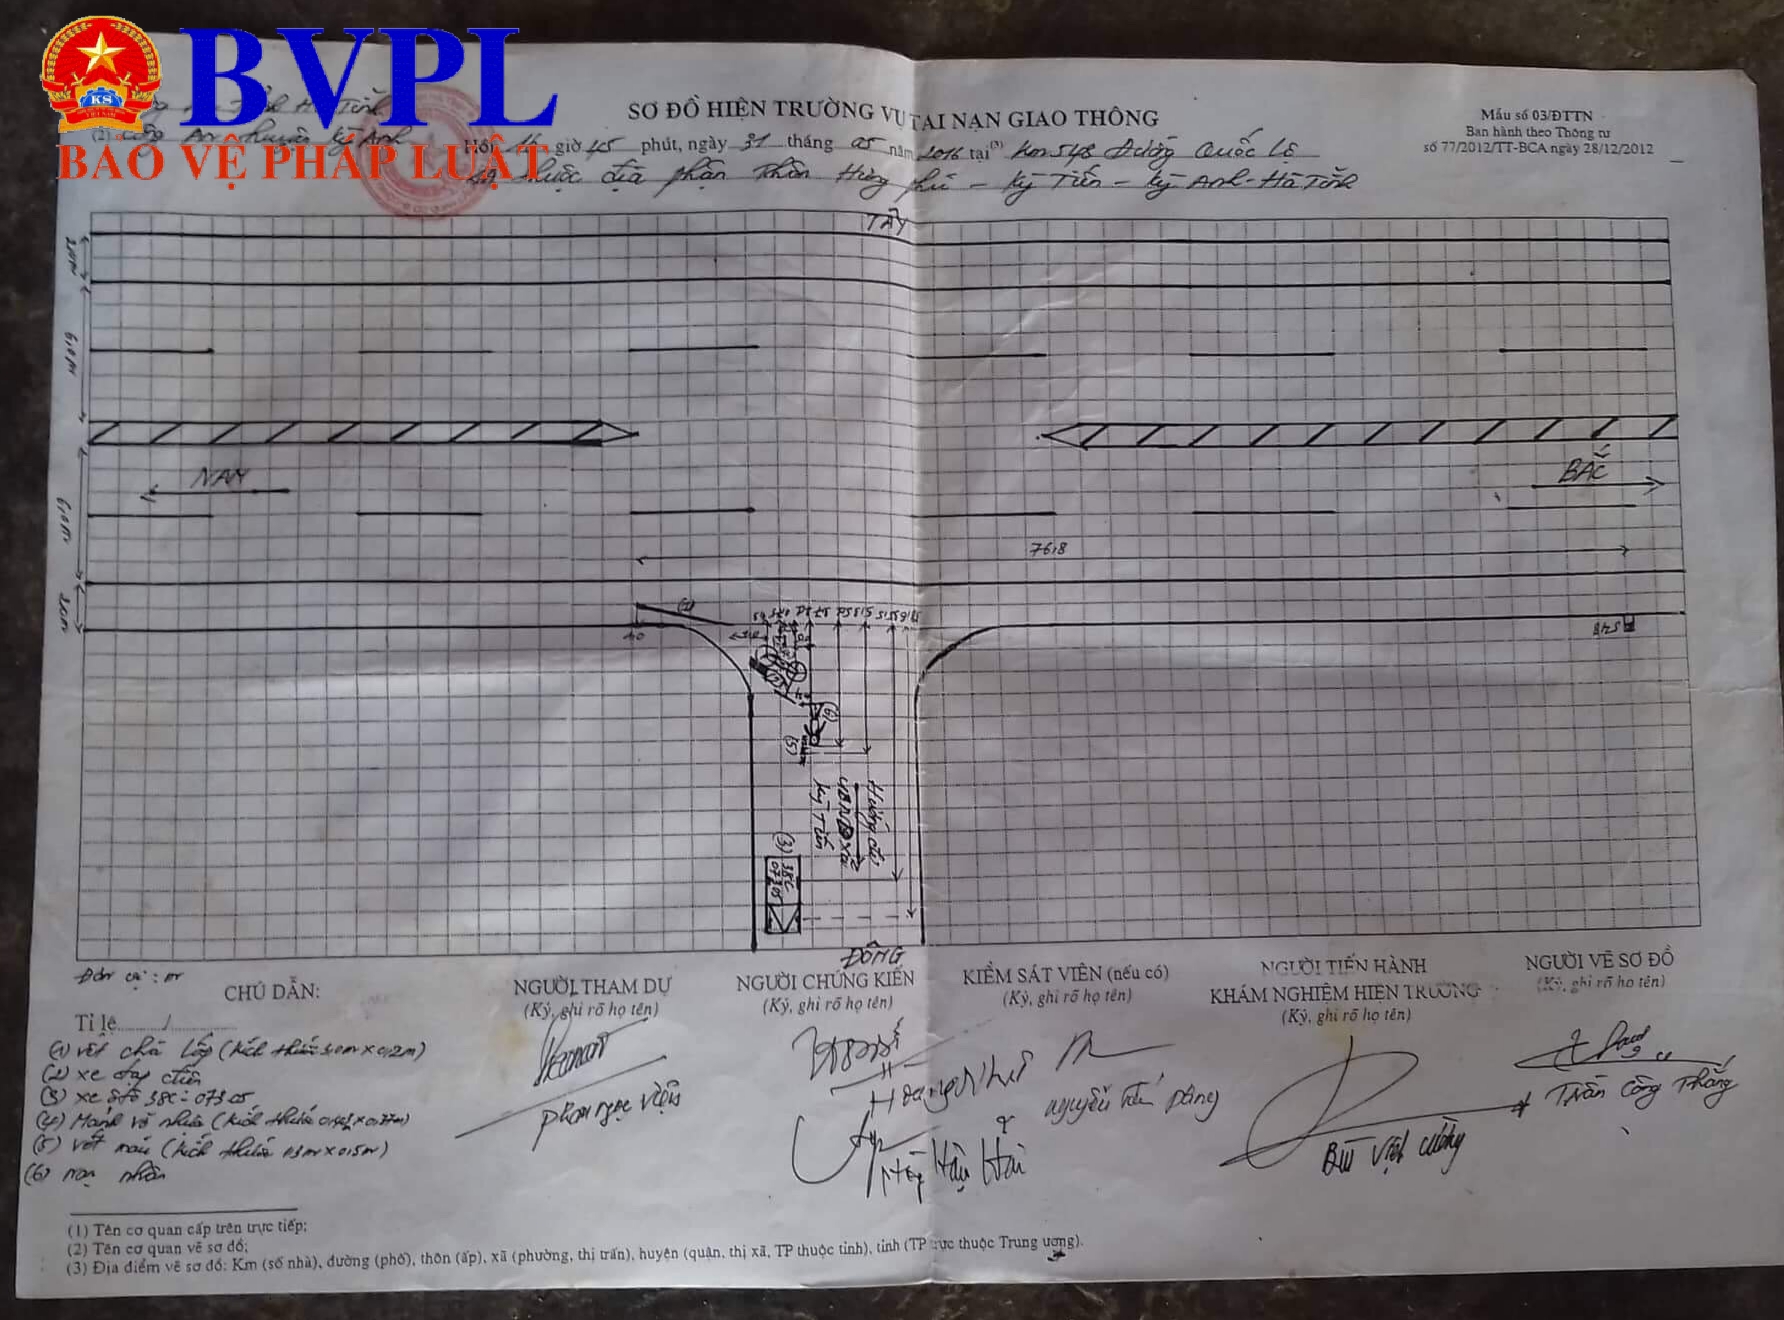 BVPL
BẢO VỆ PHÁP LUẬT
KS
Tỉnh Hà Tĩnh
(2) Công An huyện Kỳ Anh
SƠ ĐỒ HIỆN TRƯỜNG VỤ TAI NẠN GIAO THÔNG
Mẫu số 03/ĐTTN
Ban hành theo Thông tư
số 77/2012/TT-BCA ngày 28/12/2012
Hồi 16 giờ 45 phút, ngày 31 tháng 05 năm 2016 tại (3) Km 548 Đường Quốc Lộ
thuộc địa phận Thôn Hưng Phú - Kỳ Tiến - Kỳ Anh - Hà Tĩnh
TÂY
2,0m
6,0m
6,0m
2,0m
NAM
BẮC
76,8
(1)
40
548
(6)
(5)
Hướng đi
UBND xã
Kỳ Tiến
(3)
38C
07305
ĐÔNG
Đơn vị : m
CHÚ DẪN:
Tỉ lệ....../......
(1) vết chà lốp (kích thước 3,0m x 0,2m)
(2) xe đạp điện
(3) xe ôtô 38C: 07305
(4) Mảnh vỡ nhựa
(5) vết máu (kích thước 1,3m x 0,5m)
(6) nạn nhân
NGƯỜI THAM DỰ
(Ký, ghi rõ họ tên)
NGƯỜI CHỨNG KIẾN
(Ký, ghi rõ họ tên)
KIỂM SÁT VIÊN (nếu có)
(Ký, ghi rõ họ tên)
NGƯỜI TIẾN HÀNH
KHÁM NGHIỆM HIỆN TRƯỜNG
(Ký, ghi rõ họ tên)
NGƯỜI VẼ SƠ ĐỒ
(Ký, ghi rõ họ tên)
Bùi Việt Cường
Trần Công Thắng
(1) Tên cơ quan cấp trên trực tiếp;
(2) Tên cơ quan vẽ sơ đồ;
(3) Địa điểm vẽ sơ đồ: Km (số nhà), đường (phố), thôn (ấp), xã (phường, thị trấn), huyện (quận, thị xã, TP thuộc tỉnh), tỉnh (TP trực thuộc Trung ương).